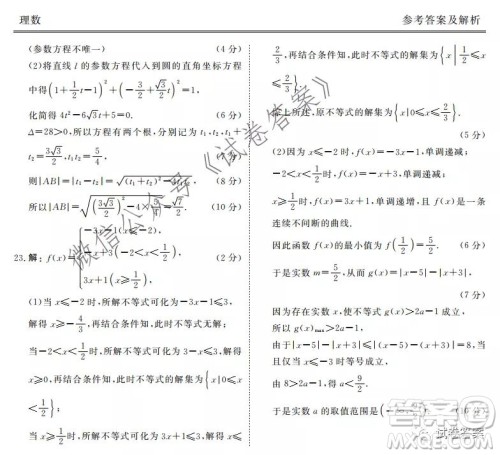 理数
参考答案及解析
(参数方程不唯一) (4 分)
(2)将直线 l 的参数方程代入到圆的直角坐标方
程中得(1+1/2 t-1)²+(-3/2+√3/2 t)²=1,
化简得 4t²-6√3t+5=0. (6 分)
Δ=28>0,所以方程有两个根,分别记为 t₁,t₂,
t₁+
t₂=3√3/2,t₁t₂=5/4, (7 分)
则|AB|=|t₁-t₂|=√((t₁+t₂)²-4t₁t₂) (8 分)
所以|AB|=√((3√3/2)²-4×5/4)=√7/2. (10 分)
23.解:f(x)= { -3x-1(x≤-2)
-x+3(-2<x<1/2), (2 分)
3x+1(x≥1/2)
(1)当 x≤-2 时,所解不等式可化为-3x-1≤3,
解得 x≥-4/3,再结合条件知,此时不等式无解;
当-2<x<1/2时,所解不等式可化为-x+3≤3,解得
x≥0,再结合条件知,此时不等式的解集为{x|0≤x
<1/2};
当 x≥1/2时,所解不等式可化为 3x+1≤3,解得 x≤
2/3,再结合条件知,此时不等式的解集为{x|1/2≤x
≤2/3}.
综上所述,原不等式的解集为{x|0≤x≤2/3}.
(5 分)
(2)因为 x≤-2 时,f(x)=-3x-1,单调递减;
-2<x<1/2时,f(x)=-x+3,单调递减;
x≥1/2时,f(x)=3x+1,单调递增,且 f(x)是一条
连续不间断的曲线.
因此函数 f(x)的最小值为 f(1/2)=5/2. (6 分)
于是实数 m=5/2,从而 g(x)=|x-5|-|x+3|.
(7 分)
因为存在实数 x,使不等式 g(x)>2a-1 成立,
所以 g(x)max>2a-1. (8 分)
由于|x-5|-|x+3|≤|x-5-(x+3)|=8,当
且仅当 x≤-3 时等号成立,
由 8>2a-1,得 a<9/2.
于是实数 a 的取值范围是(-∞,9/2). (10 分)
微信公众号《试卷答案》
试卷答案